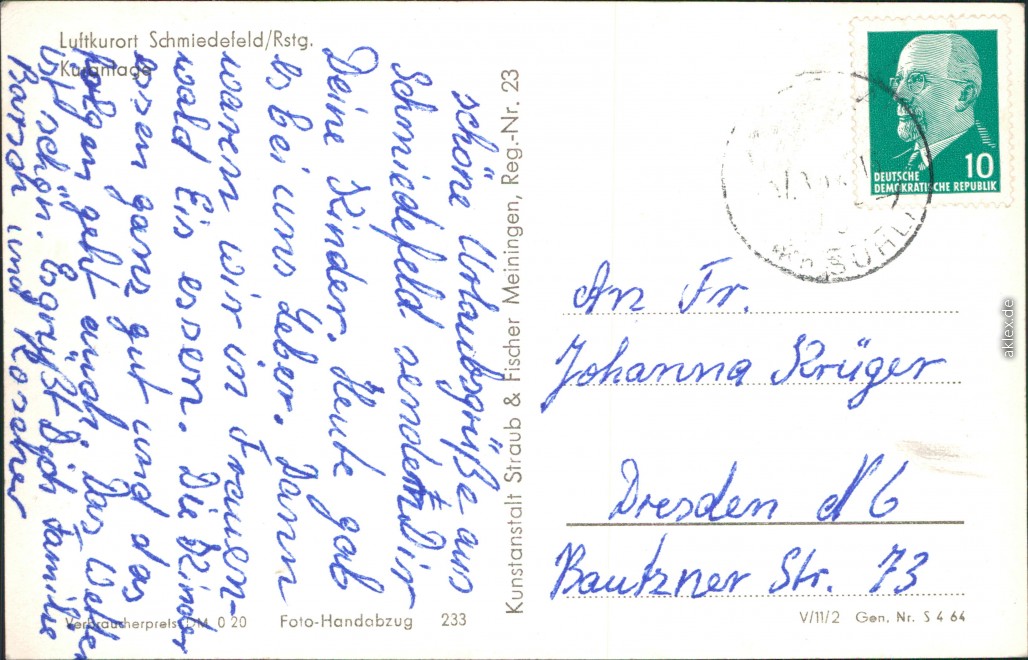 Luftkurort Schmiedefeld/Rstg.
Kuranlage
schöne Urlaubsgrüße aus
Schmiedefeld sendet Dir
Deine Kinder. Heute gab
es bei uns Leber. Dann
waren wir in Frauen-
wald Eis essen. Die Kinder
essen ganz gut und das
folgen geht auch. Das Wetter
ist schön. Es grüßt Dich Familie
Barsch und Koscher
Kunstanstalt Straub & Fischer Meiningen, Reg.-Nr. 23
DEUTSCHE
DEMOKRATISCHE REPUBLIK
10
SUHL
An Fr.
Johanna Krüger
Dresden N 6
Bautzner Str. 73
Verbraucherpreis DM 0 20 Foto-Handabzug 233
V/11/2 Gen. Nr. S 4 64
aklex.de